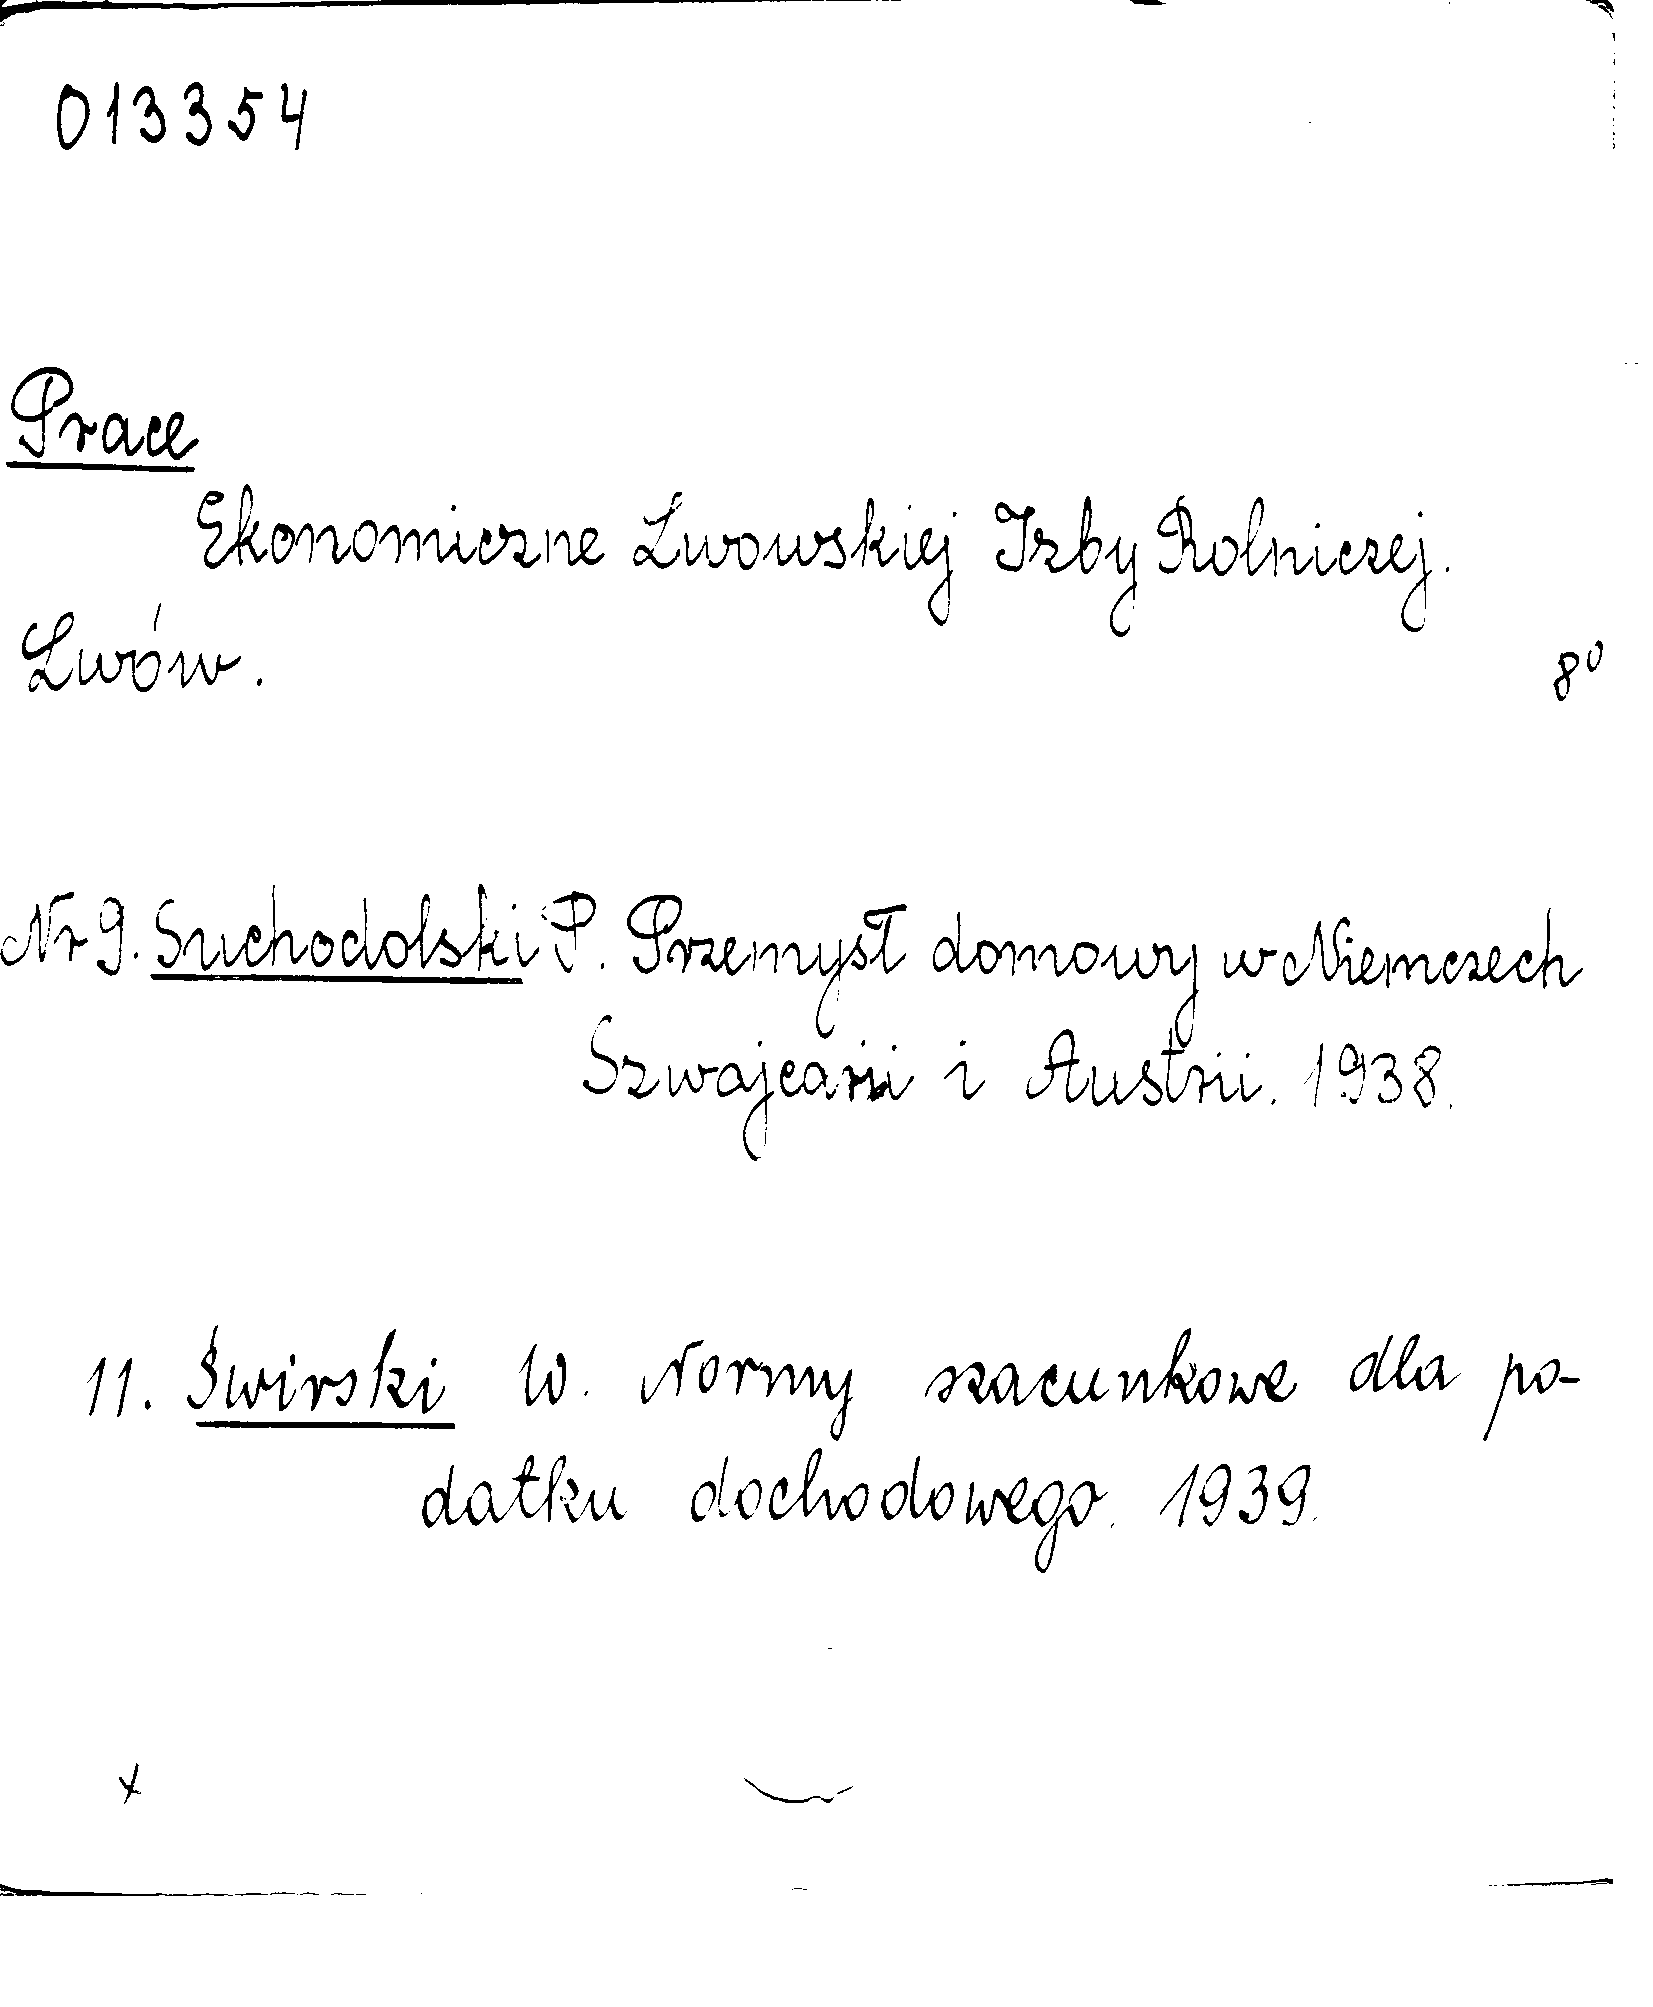 013354
Prace
Ekonomiczne Lwowskiej Izby Rolniczej.
Lwów. 8⁰
Nr 9. Suchodolski P. Przemysł domowy w Niemczech
Szwajcarii i Austrii. 1938.
11. Świrski W. Normy szacunkowe dla po-
datku dochodowego. 1939.
x